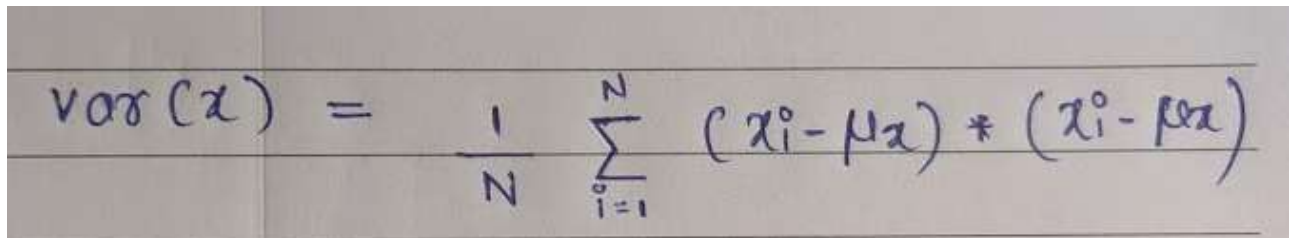 var(x) = 1/N ∑_{i=1}^{N} (x_i - μ_x) * (x_i - μ_x)